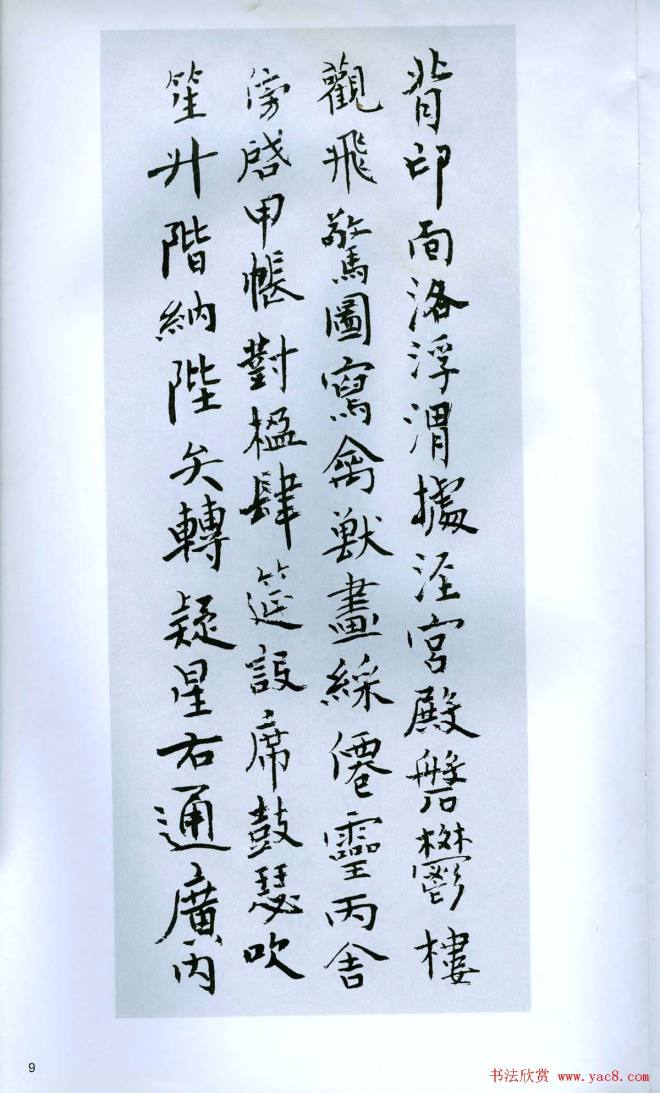 背邙面洛浮渭據涇宮殿磐鬱樓
觀飛驚圖寫禽獸畫綵僊靈丙舍
傍啓甲帳對楹肆筵設席鼓瑟吹
笙升階納陛弁轉疑星右通廣内
9
书法欣赏 www.yac8.com